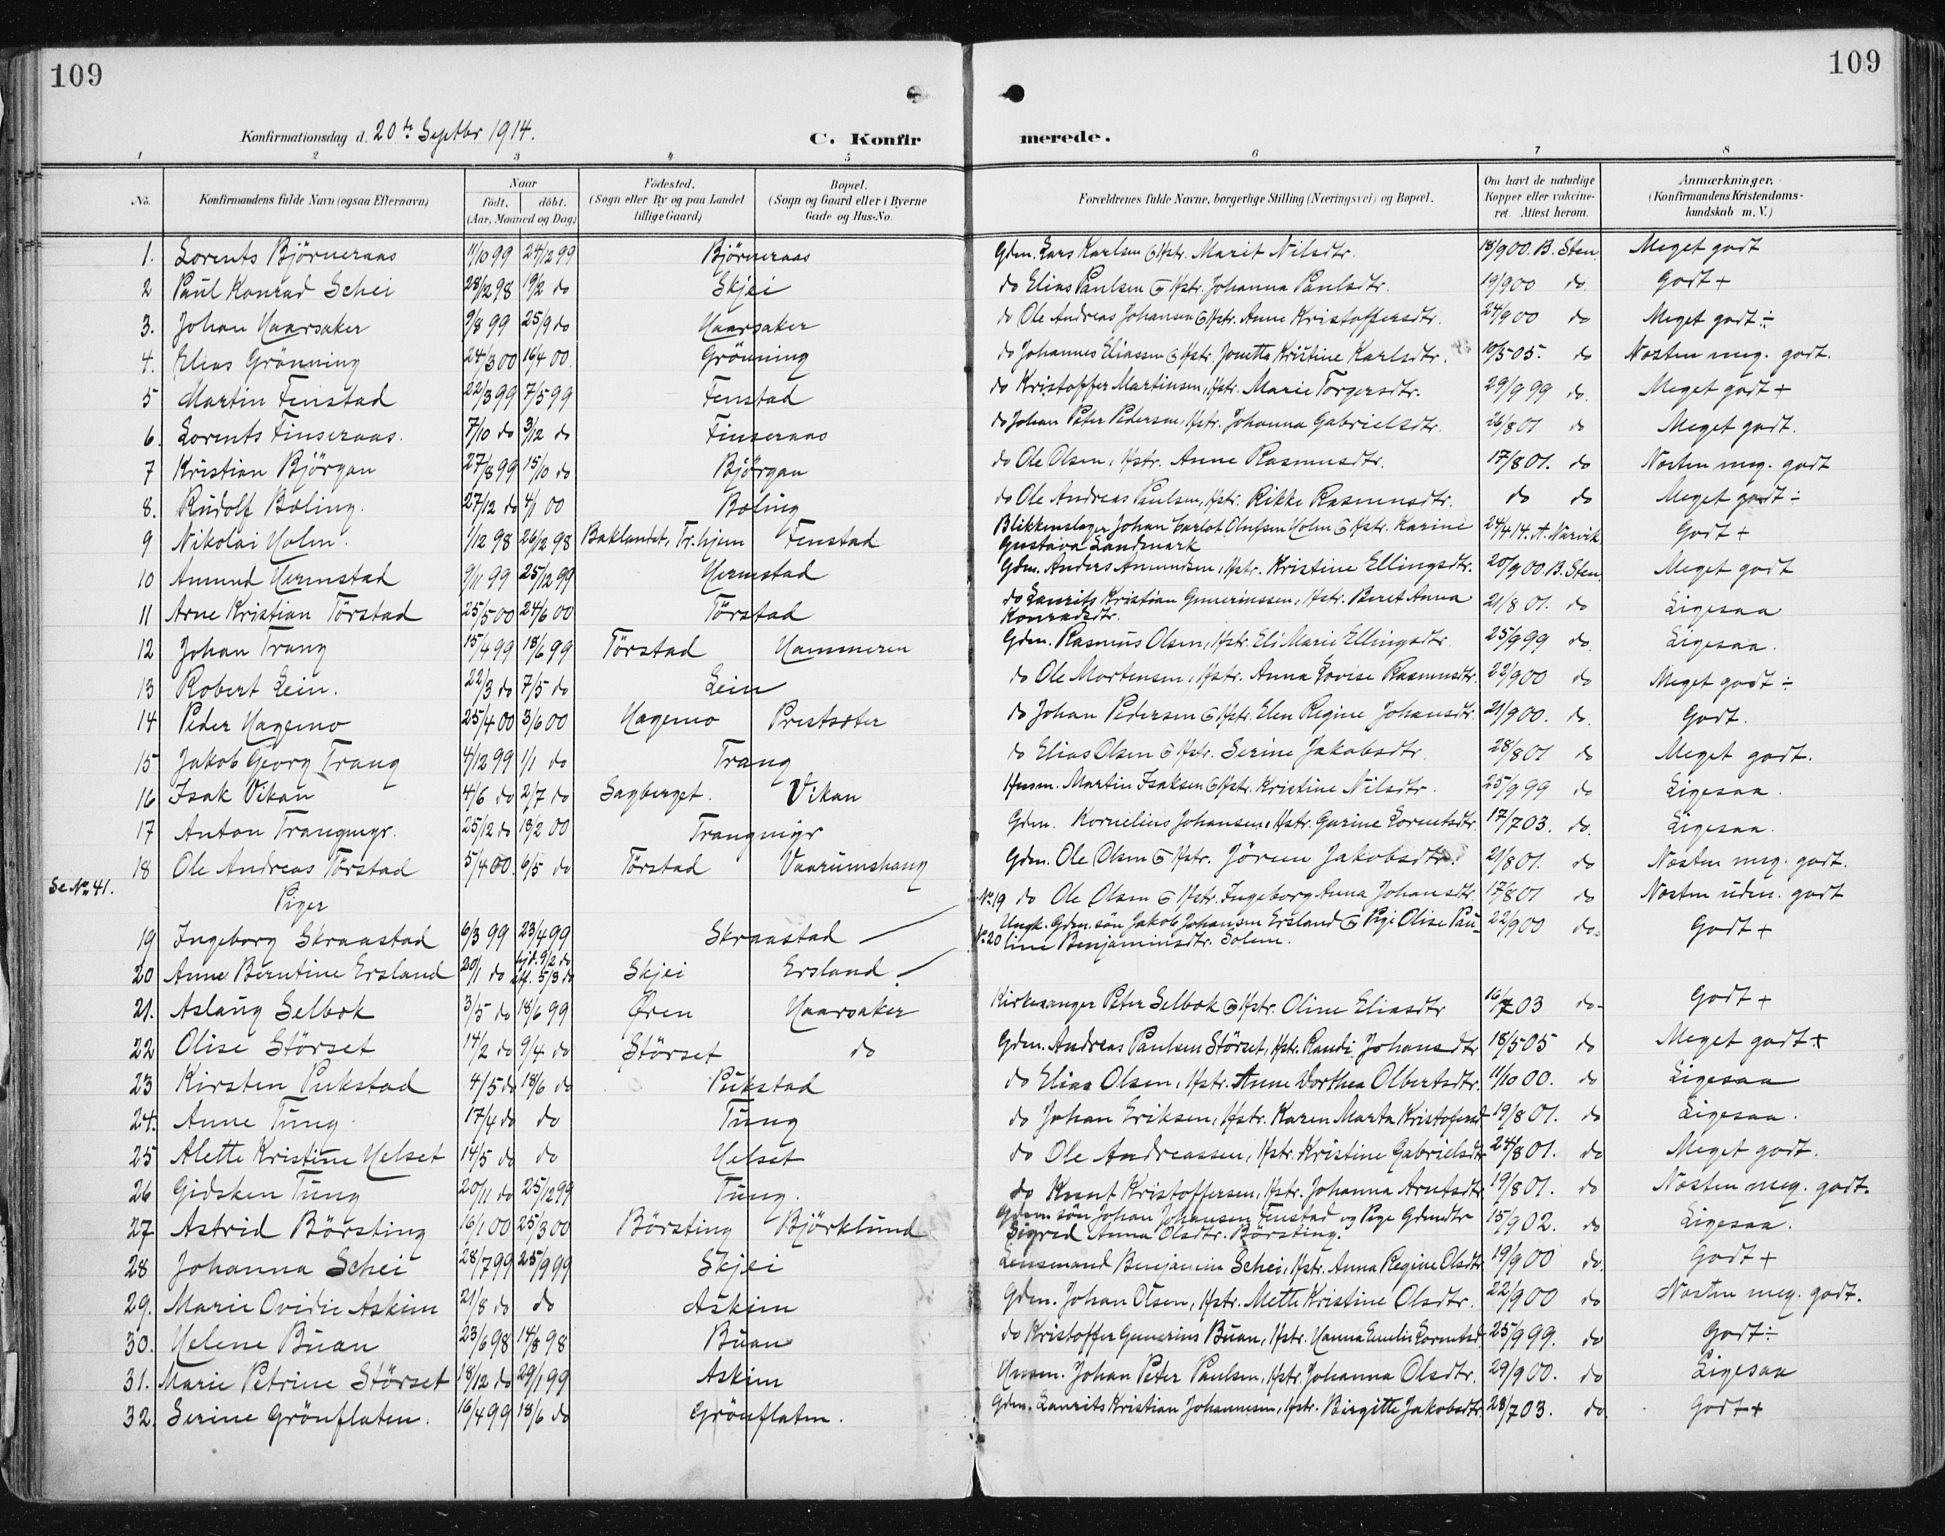 109
109
Konfirmationsdag d. 20de Septbr 1914.
C. Konfirmerede.
1 2 3 4 5 6 7 8
No.
Konfirmandens fulde Navn (ogsaa Efternavn)
Naar
født. døbt.
(Aar, Maaned og Dag)
Fødested.
(Sogn eller By og paa Landet tillige Gaard)
Bopæl.
(Sogn og Gaard eller i Byerne Gade og Hus-No.
Forældrenes fulde Navne, borgerlige Stilling (Næringsvei) og Bopæl.
Om havt de naturlige Kopper eller vakcineret. Attest herom.
Anmærkninger,
(Konfirmandens Kristendomskundskab m. V.)
1. Lorents Björneraas 11/10 99 24/12 99 Björneraas Gdm. Lars Karlsen & Hstr. Marit Nilsdtr. 18/9 00. B. Sten Meget godt
2 Paul Konrad Schei 28/12 98 19/2 do Skjei do Elias Paulsen & Hstr. Johanna Paulsdtr. 19/9 00 do Godt +
3. Johan Haarsaker 9/8 99 25/9 do Haarsaker do Ole Andreas Johansen & Hstr. Anne Kristoffersdtr. 24/9 00 do Meget godt ÷
4. Elias Grönning 24/3 00 16/4 00 Grönning do Johannes Eliassen & Hstr. Jonetta Kristine Karlsdtr. 10/5 05. do Næsten meg. godt.
5 Martin Fenstad 22/3 99 7/5 99 Fenstad do Kristoffer Martinsen, Hstr. Marie Torgersdtr. 29/9 99 do. Meget godt +
6. Lorents Finseraas. 7/10 do 3/12 do Finseraas do Johan Peter Pedersen, Hstr. Johanna Gabrielsdtr. 26/8 01 do Meget godt.
7 Kristian Björgan 27/8 99 15/10 do Björgan do Ole Olsen, Hstr. Anne Rasmusdtr. 17/8 01. do Næsten meg. godt
8. Rudolf Boling. 27/12 do 4/1 00 Boling do Ole Andreas Paulsen, Hstr. Rikke Rasmusdtr. do do Meget godt ÷
9 Nikolai Holm. 1/12 98 26/2 98 Baklandet, Tr.hjem Fenstad Blikkenslager Johan Carlot Olufsen Holm & Hstr. Karine 24/4 14. A. Narvik Godt +
Gustava Landmark
10 Amund Hermstad 9/11 99 25/12 99 Hermstad Gdm. Anders Amundsen, Hstr. Kristine Ellingsdtr. 20/9 00. B. Sten Meget godt
11 Arne Kristian Törstad 25/5 00 24/6 00 Törstad do Laurits Kristian Gunerinssen, Hstr. Beret Anna 21/8 01. do Ligesaa
Konradsdtr.
12 Johan Trang 15/4 99 18/6 99 Törstad Hammeren Gdm. Rasmus Olsen, Hstr. Eli Marie Ellingsdtr. 25/9 99 do. Ligesaa.
13 Robert Lein. 22/3 do 7/5 do Lein do Ole Mortensen, Hstr. Anna Lovise Rasmusdtr. 22/9 00 do Meget godt ÷
14 Peder Hagemo 25/4 00 3/6 00 Hagemo Prestsæter do Johan Pedersen & Hstr. Elen Regine Johansdtr. 21/9 00. do. Godt.
15 Jakob Georg Trang 4/12 99 1/1 do Trang do Elias Olsen & Hstr. Serine Jakobsdtr. 28/8 01 do Meget godt.
16 Isak Vikan 4/6 do 2/7 do Sagberget. Vikan Husm. Martin Isaksen & Hstr. Kristine Nilsdtr. 25/9 99 do Ligesaa.
17 Anton Trangmyr. 25/12 do 18/2 00 Trangmyr Gdm. Kornelius Johansen, Hstr. Gurine Lorentsdtr. 17/7 03. do. Ligesaa.
18 Ole Andreas Törstad 5/4 00. 6/5 do Törstad Vaarumshaug Gdm. Ole Olsen & Hstr. Jören Jakobsdtr. 21/8 01. do Næsten meg. godt.
Se No 41.
Piger No 19 do Ole Olsen & Hstr. Ingeborg Anna Johansdtr. 17/8 01 do Næsten uden. godt
19 Ingeborg Skraastad 6/3 99 23/4 99 Skraastad Ungk. Gdm. søn Jakob Johansen Ersland & Pige Olise Pau- 22/9 00 do Godt +
No 20 line Benjaminsdtr. Solem.
20 Anne Berntine Ersland 20/1 do hjd. 9/2 do stf. 5/3 do Skjei Ersland
21. Aslaug Selbok 3/5 do 18/6 99 Øren Haarsaker Kirkesanger Peter Selbok & Hstr. Oline Eliasdtr 16/7 03 do Godt +
22 Olise Störset 14/2 do 9/4 do Störset do Gdm. Andreas Paulsen Störset, Hstr. Randi Johansdtr 18/5 05 do Meget godt +
23 Kirsten Pukstad 4/5 do 18/6 do Pukstad do Elias Olsen, Hstr. Anne Dorthea Olbertsdtr. 11/10 00. do Ligesaa
24. Anne Tung 17/4 do do Tung do Johan Eriksen, Hstr. Karen Marta Kristofersd 19/8 01. do Ligesaa.
25 Alette Kristine Helset 14/5 do do Helset do Ole Andreassen, Hstr. Kristine Gabrielsdtr 24/8 01. do Meget godt.
26 Gidsken Tung 20/11 do 25/12 99 Tung. do Knut Kristoffersen, Hstr. Johanna Arntsdtr. 19/8 01. do Næsten meg. godt.
27 Astrid Börsting 16/1 00 25/3 00 Börsting Björklund Gdm. søn Johan Johansen Fenstad og Pige Gdmdtr 15/9 02. do Ligesaa.
Sigrid Anna Olsdtr. Börsting.
28 Johanna Schei 28/7 99 25/9 99 Skjei Lensmand Benjamin Schei, Hstr. Anna Regine Olsdtr 19/9 00 do. Godt +
29. Marie Ovidie Askim 21/8 do do Askim Gdm. Johan Olsen, Hstr. Mette Kristine Olsdtr. 22/9 00 do Næsten meg. godt.
30. Helene Buan 23/6 98 14/8 98 Buan do Kristoffer Gunerius Buan, Hstr. Hanna Emelie Lorentsd. 25/9 99. do Godt ÷
31. Marie Petrine Störset 18/12 do 29/1 99 Askim Husm. Johan Peter Paulsen, Hstr. Johanna Olsdtr. 29/9 00. do Ligesaa
32. Serine Grönflaten. 16/4 99 18/6 do Grönflaten. Gdm. Laurits Kristian Johannesen, Hstr. Birgitte Jakobsdtr 28/7 03. do. Godt +